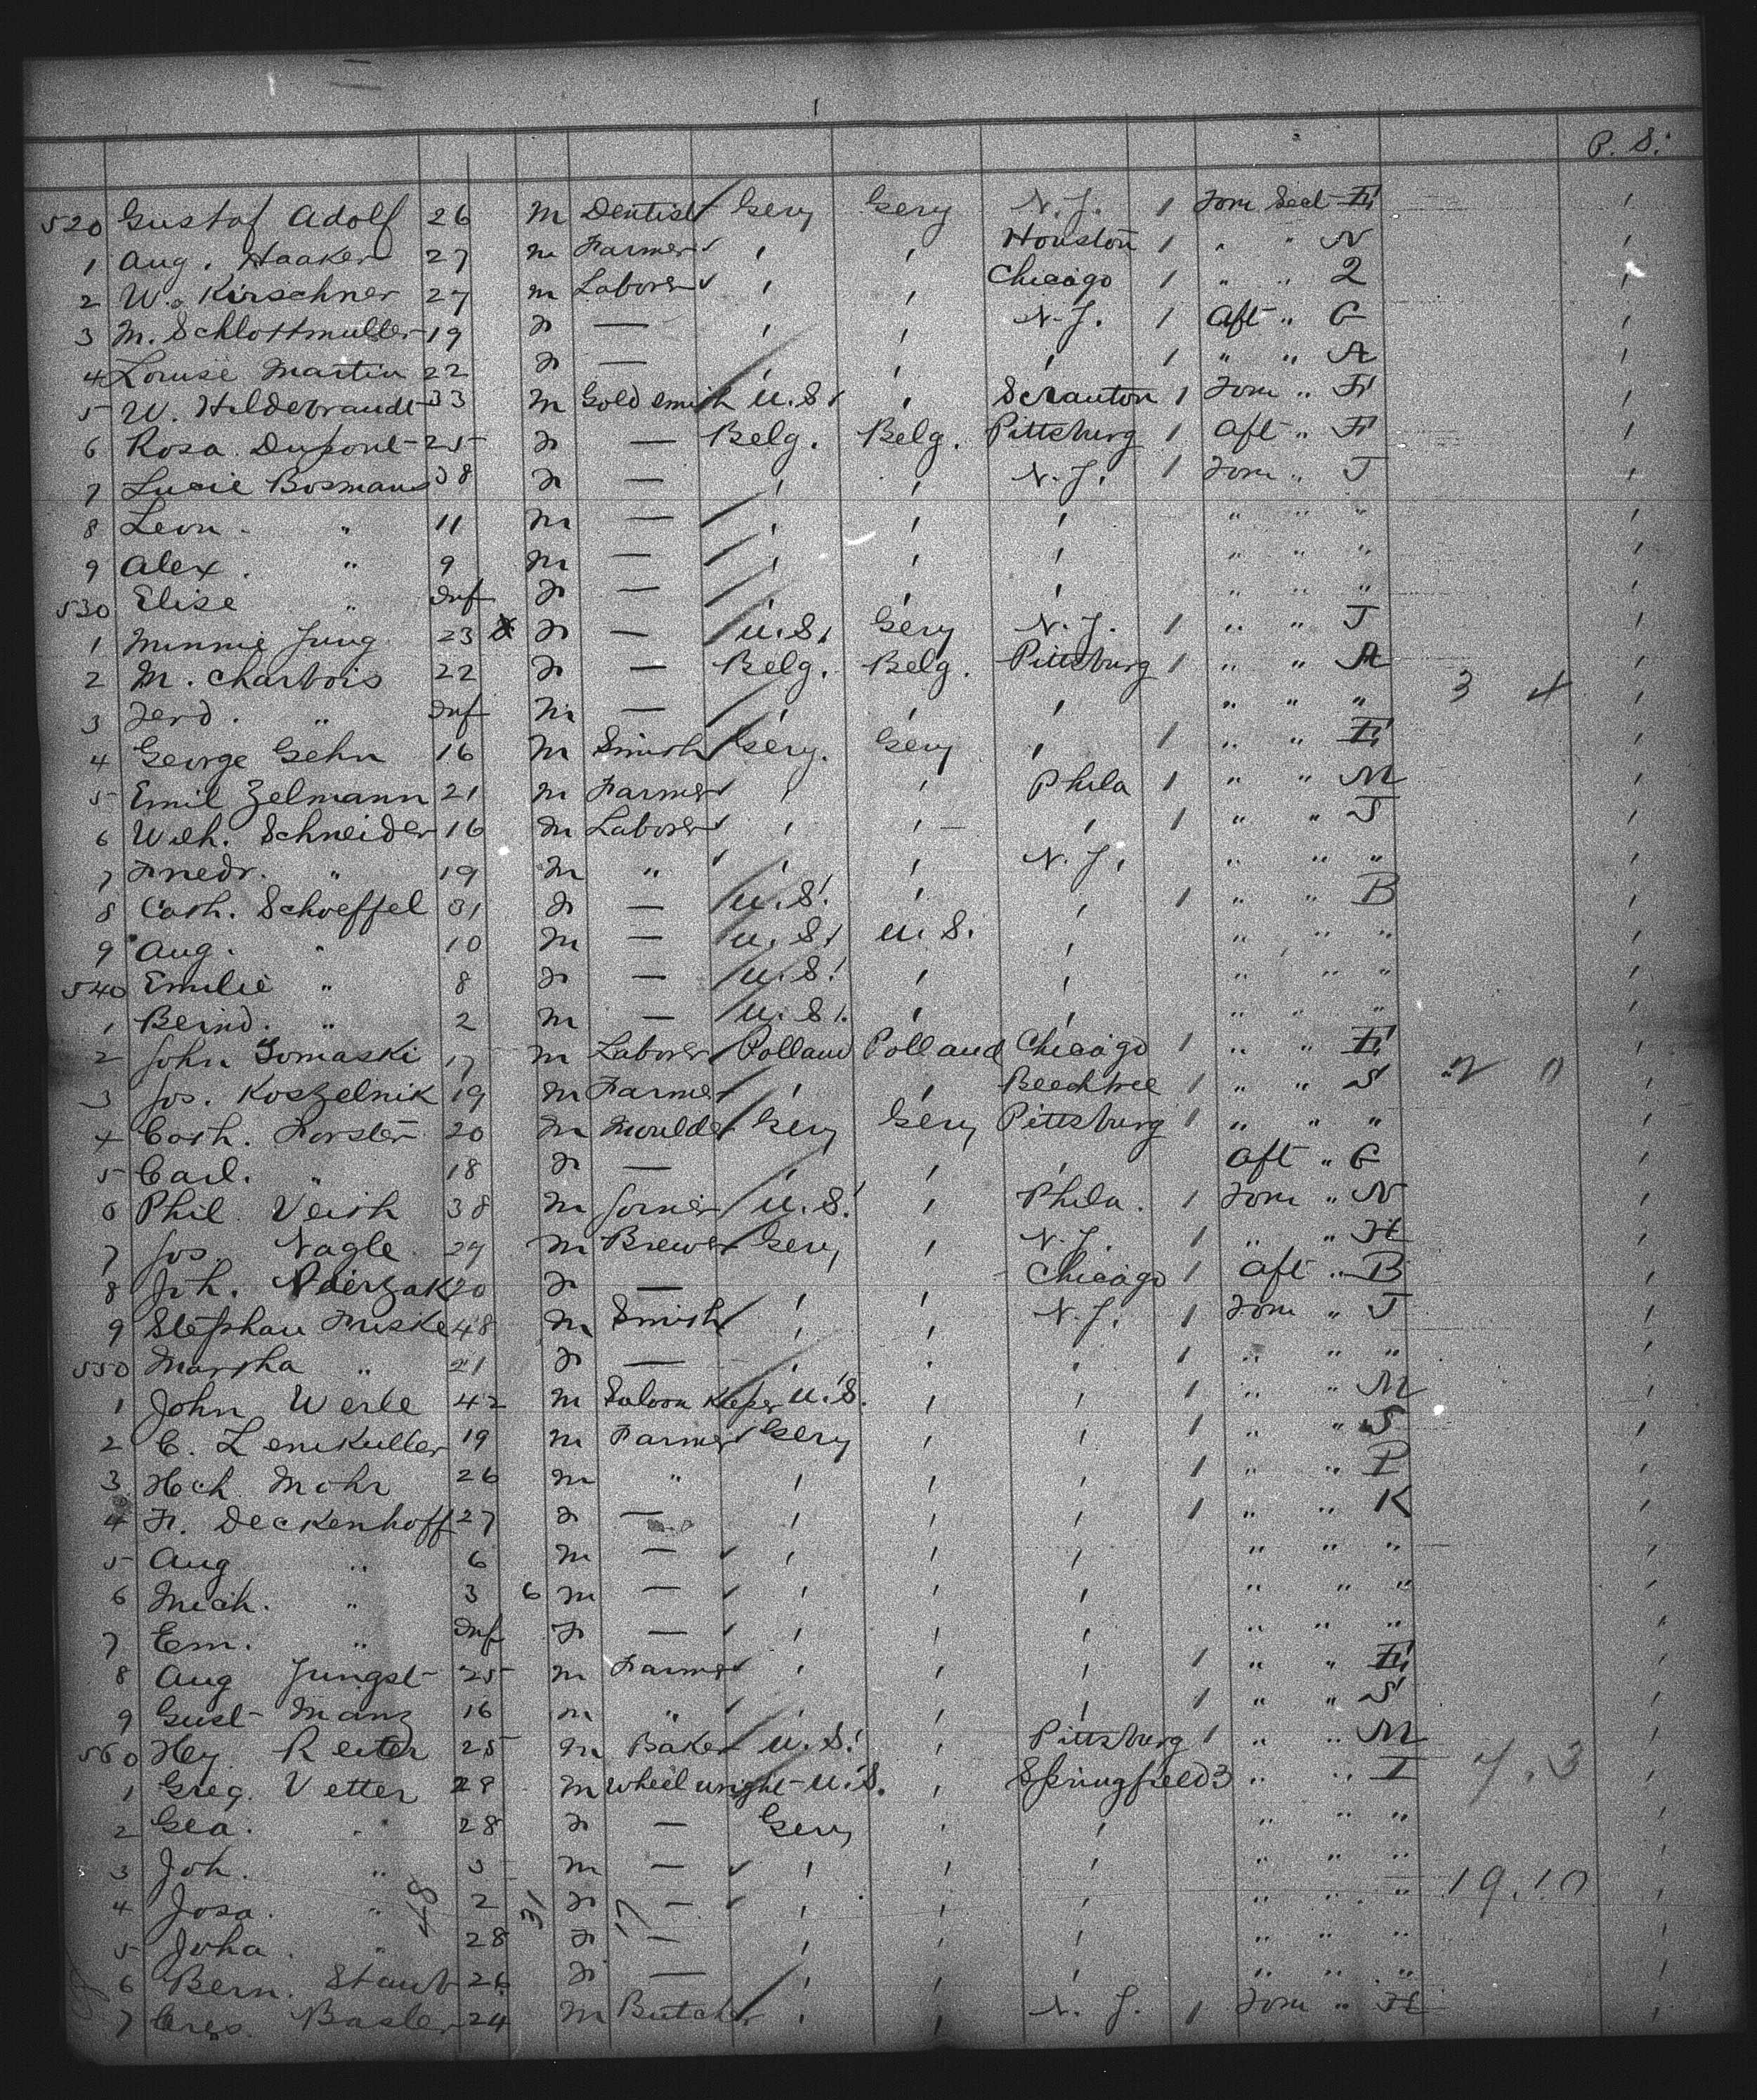 P. S.
520 Gustof Adolf 26 M Dentist Gery Gery N.J. 1 Forw Sect H
1 Aug. Haaker 27 m Farmer ' ' Houston 1 " " N
2 W. Kirschner 27 m Laborer ' ' Chicago 1 " " 2
3 M. Schlottmuller 19 f — ' ' N.J. 1 Aft " G
4 Louise Martin 22 f — ' ' ' 1 " " A
5 W. Hildebrandt 33 M Goldsmith U.S. ' Scranton 1 Forw " H
6 Rosa Dupont 25 f — Belg. Belg. Pittsburg 1 Aft " H
7 Lucie Bosmans 38 f — ' ' N.J. 1 Forw " J
8 Leon " 11 M — ' ' ' " " "
9 Alex. " 9 M — ' ' ' " " "
530 Elise " Inf f — ' ' ' " " "
1 Minnie Jung 23 f — U.S. Gery N.J. 1 " " J
2 M. Charbois 22 f — Belg. Belg. Pittsburg 1 " " A
3 Ferd. " Inf M — ' ' ' " " " 3 4
4 George Gehn 16 M Smith Gery. Gery ' 1 " " H
5 Emil Zelmann 21 m Farmer ' ' Phila 1 " " M
6 Wilh. Schneider 16 m Laborer ' ' ' 1 " " J
7 Friedr. " 19 M " ' ' N.J. " " "
8 Cath. Schoeffel 31 f — U.S. ' ' 1 " " B
9 Aug. " 10 M — U.S. U.S. ' " " "
540 Emilie " 8 f — U.S. ' ' " " "
1 Bernd. " 2 M — U.S. ' ' " " "
2 John Tomaski 17 m Laborer Polland Polland Chicago 1 " " H
3 Jos. Koszelnik 19 m Farmer ' ' Beechtree 1 " " S
4 Cath. Forster 20 M Moulder Gery Gery Pittsburg 1 " " "
5 Carl. " 18 f — ' ' ' Aft " G
6 Phil. Veith 38 M Joiner U.S. ' Phila. 1 Forw " N
7 Jos. Nagle 29 M Brewer Gery ' N.J. 1 " " H
8 Joh. 20 f — ' ' Chicago 1 Aft " B
9 Stephan Miske 48 M Smith ' ' N.J. 1 Forw " J
550 Martha " 21 f — ' ' ' 1 " " "
1 John Werle 42 M Saloon Keeper U.S. ' ' 1 " " M
2 C. Lemkuller 19 m Farmer Gery ' ' 1 " " S
3 Hch. Mohr 26 m " ' ' ' 1 " " P
4 Fr. Deckenhoff 27 f — ' ' ' 1 " " K
5 Aug " 6 m — ' ' ' " " "
6 Mich. " 3 6 m — ' ' ' " " "
7 Em. " Inf f — ' ' ' " " "
8 Aug Jungst 25 m Farmer ' ' ' 1 " " H
9 Gust Manz 16 m " ' ' ' 1 " " S
560 Hey. Reiter 25 M Baker U.S. ' Pittsburg 1 " " M
1 Greg. Vetter 29 M Wheelwright U.S. ' Springfield 3 " " I
2 Gea. " 28 f — Gery ' ' " " "
3 Joh. " 3 m — ' ' ' " " "
4 Josa. " 2 f — ' ' ' " " " 19.10
5 Joha. " 28 f — ' ' ' " " "
6 Bern. Staub 26 f — ' ' ' " " "
7 Basler 24 M Butcher ' ' N.J. 1 Forw " H